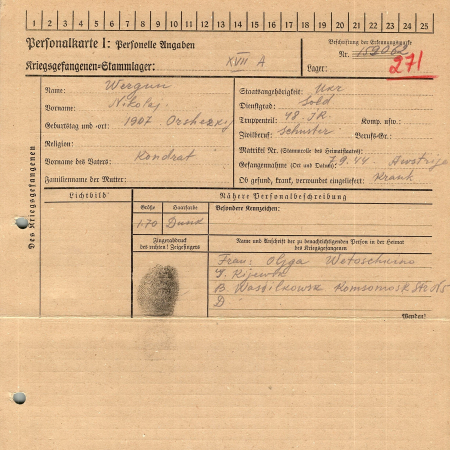 1 2 3 4 5 6 7 8 9 10 11 12 13 14 15 16 17 18 19 20 21 22 23 24 25
Personalkarte I: Personelle Angaben
Kriegsgefangenen-Stammlager: XVII A
Beschriftung der Erkennungsmarke
Nr. 159062
Lager: 271
Des Kriegsgefangenen
Name: Wergun
Vorname: Nikolaj
Geburtstag und -ort: 1907
Religion:
Vorname des Vaters: Kondrat
Familienname der Mutter:
Staatsangehörigkeit: Ukr
Dienstgrad: Sold
Truppenteil: 48. JR. Komp. usw.:
Zivilberuf: Schuster Berufs-Gr.:
Matrikel Nr. (Stammrolle des Heimatstaates):
Gefangennahme (Ort und Datum): 7.9.44
Ob gesund, krank, verwundet eingeliefert: Krank
Lichtbild
Nähere Personalbeschreibung
Größe Haarfarbe Besondere Kennzeichen:
1.70
Fingerabdruck
des rechten! Zeigefingers
Name und Anschrift der zu benachrichtigenden Person in der Heimat
des Kriegsgefangenen
Frau: Olga
B.
D
Wenden!